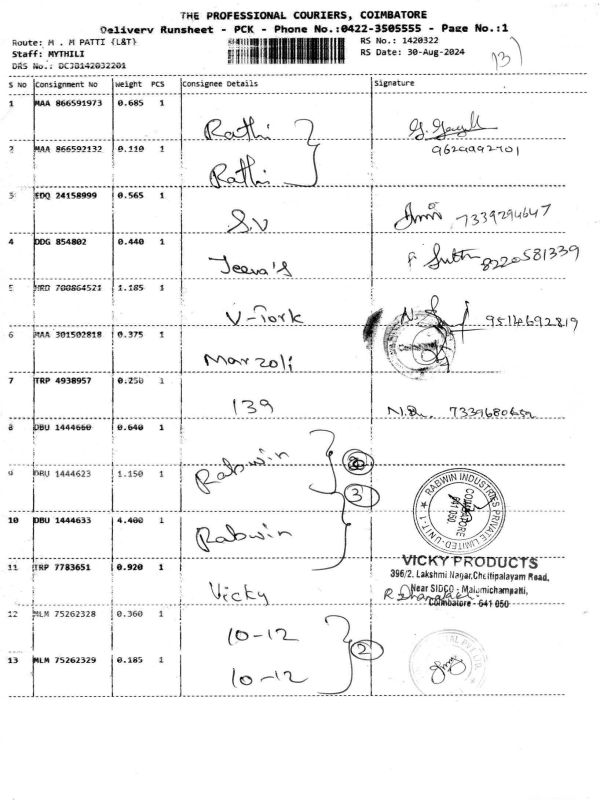 THE PROFESSIONAL COURIERS, COIMBATORE
Delivery Runsheet - PCK - Phone No.:0422-3505555 - Page No.:1
Route: M . M PATTI {L&T}
RS No.: 1420322
Staff: MYTHILI
RS Date: 30-Aug-2024
DRS No.: DCJB142032201
13)
S No Consignment No Weight PCS Consignee Details Signature
1 MAA 866591973 0.685 1
Rathi
2 MAA 866592132 0.110 1
9629992701
Rathi
3 EDQ 24158999 0.565 1
S.V 7339294647
4 DDG 854802 0.440 1
Jeeva's 8220581339
5 MRD 700864521 1.185 1
V-Tork 9514692819
6 MAA 301502818 0.375 1
Marzoli
7 TRP 4938957 0.250 1
139
8 DBU 1444660 0.640 1
Rabwin
9 DBU 1444623 1.150 1
3
10 DBU 1444633 4.400 1
Rabwin
RABWIN INDUSTRIES PRIVATE LIMITED-UNIT-1
COIMBATORE
641 050.
11 TRP 7783651 0.920 1
VICKY PRODUCTS
396/2, Lakshmi Nagar, Chettipalayam Road,
Near SIDCO - Malumichampatti,
Coimbatore - 641 050
Vicky
12 MLM 75262328 0.360 1
10-12
2
13 MLM 75262329 0.185 1
10-12